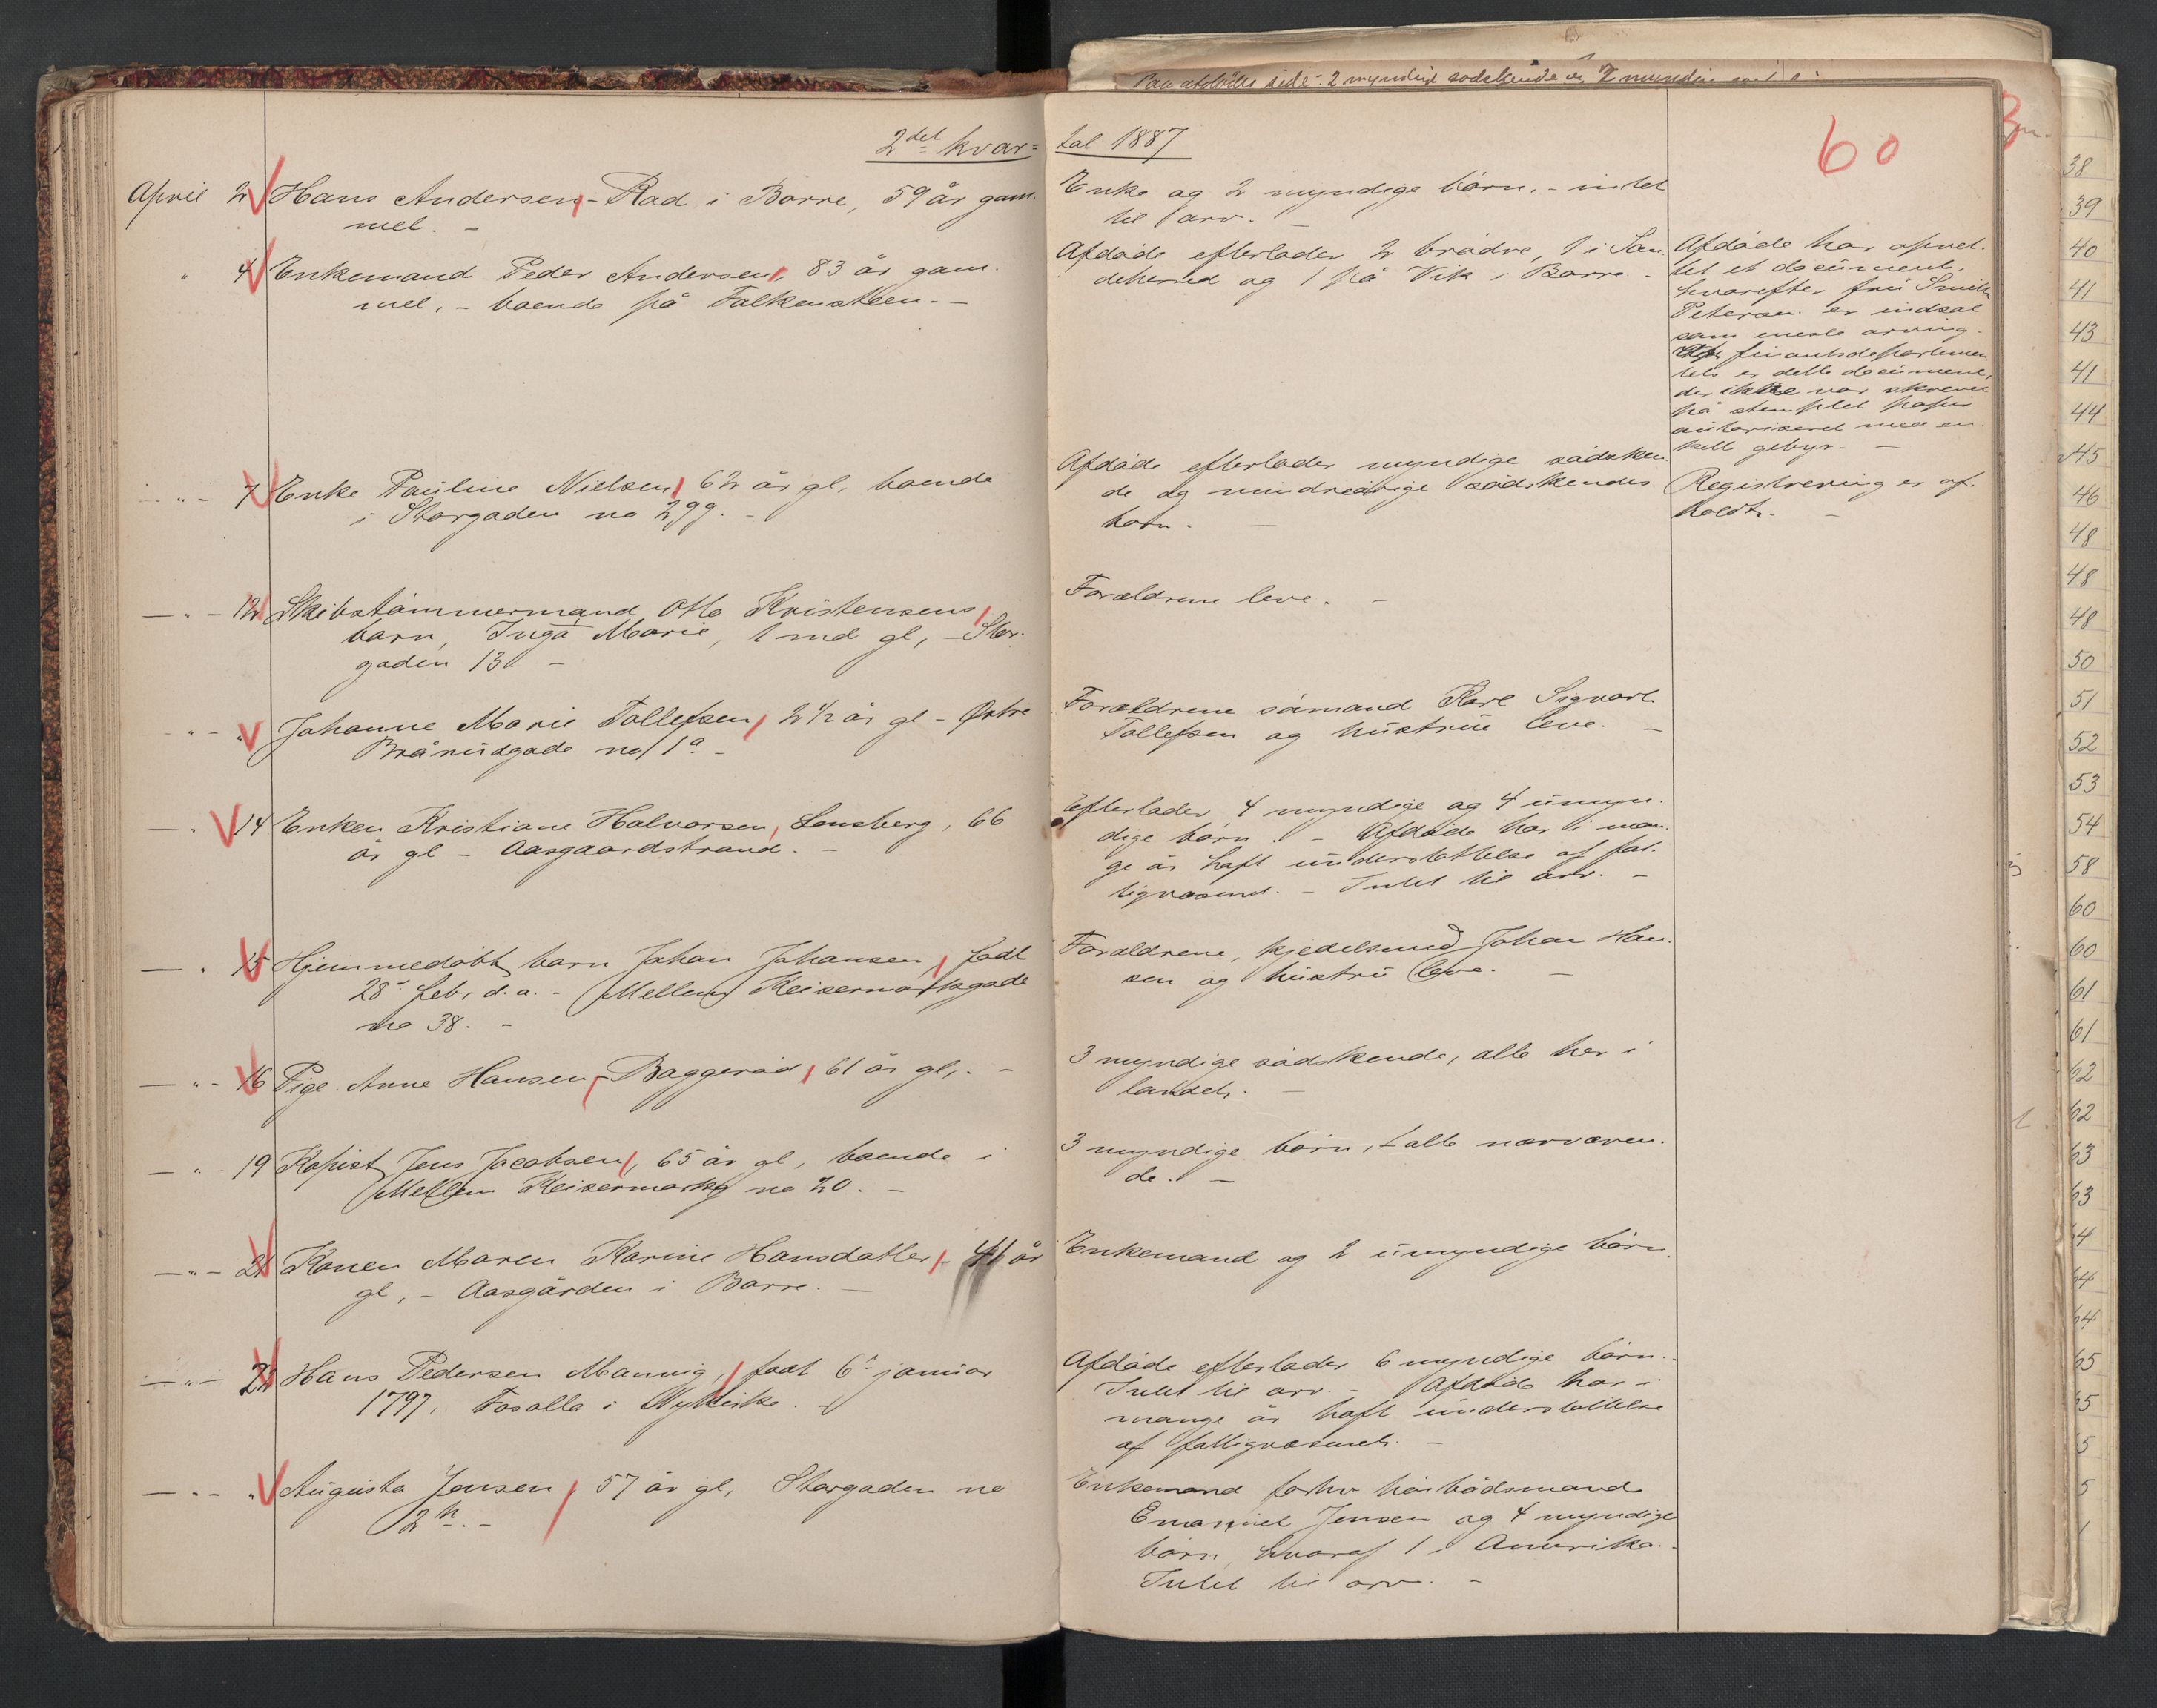 2det kvar=
tal 1887
60
April 2 Hans Andersen, - Rad i Borre, 59 år gam-
mel. -
Enke og 2 myndige börn. - intet
til arv. -
" 4 Enkemand Peder Andersen, 83 år gam-
mel, - boende på Falkensteen. -
Afdöde efterlader 2 brödre, 1 i San-
deherred og 1 på Vik i Borre. -
Afdöde har opret-
tet et document,
hvorefter frü Smith
Petersen er indsat
som eneste arving.
finantsdepartemen-
tets er dette document,
der ikke var skrevet
på stemplet papir
autoriseret med en-
kelt gebyr. -
- " - 7 Enke Pauline Nielsen, 62 år gl, boende
i Storgaden no 299. -
Afdöde efterlader myndige södsken-
de og mindreårige södskendes
börn. -
Registrering er af-
holdt. -
- " - 12 Skibstömmermand Otto Kristensens
barn, Inga Marie, 1 md gl, - Stor-
gaden 13. -
Forældrene leve. -
- " - " Johanne Marie Tollefsen, 2 1/2 år gl - Östre
Brårudgade no 1a -
Forældrene sömand Karl Sigvart
Tollefsen og hüstrüe leve. -
- " 14 Enken Kristiane Halvorsen, Lensberg, 66
år gl - Aasgaardstrand. -
Efterlader 4 myndige og 4 ümyn-
dige börn. - Afdöde har i man-
ge år haft ünderstøttelse af fat-
tigvæsenet. - Intet til arv. -
- " 15 Hjemmedöbt barn Johan Johansen, födt
28 feb, d. a. - Mellem Keisermarksgade
no 38. -
Forældrene, kjedelsmed Johan Han-
sen og hüstrü leve. -
- " - 16 Pige Anne Hansen, - Baggeröd, 61 år gl,. -
3 myndige södskende, alle her i
landet. -
- " - 19 Kopist Jens Jacobsen, 65 år gl, boende i
Mellem Keisermarksg no 20. -
3 myndige börn, alle nærværen-
de. -
- " - 21 Konen Maren Karine Hansdatter, - 41 år
gl, - Aasgården i Borre. -
Enkemand og 2 ümyndige börn.
- " - 22 Hans Pedersen Mannig, födt 6 janüar
1797, i Nykirke. -
Afdöde efterlader 6 myndige börn. -
Intet til arv. - Afdöde har i
mange år haft ünderstøttelse
af fattigvæsenet. -
- " - " Augusta Jensen, 57 år gl, Storgaden no
2 -
Enkemand forhv havbådsmand
Emanüel Jensen og 4 myndige
börn, hvoraf 1 i Amerika. -
Intet til arv. -
38
39
40
41
43
41
44
45
46
48
48
48
50
51
52
53
54
58
60
60
61
61
62
62
63
63
64
64
64
65
65
5
5